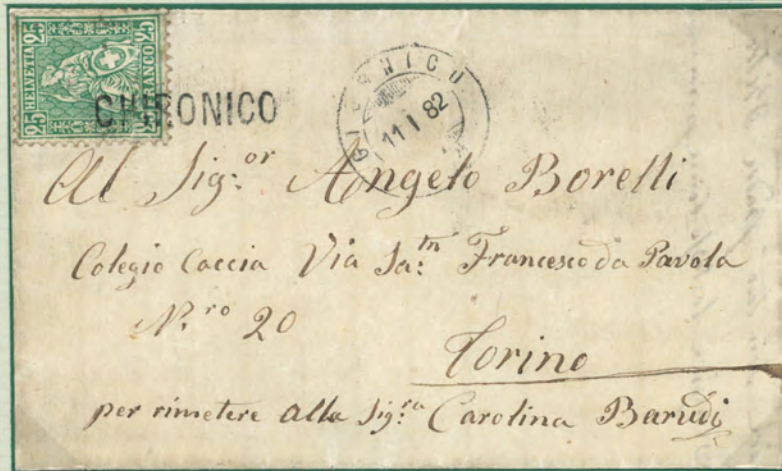 25 HELVETIA 25
25 FRANCO 25
CHIRONICO
GIORNICO
11 I 82
Al Sig:or Angelo Borelli
Colegio Caccia Via Sa:tn Francesco da Pavola
N.ro 20
Torino
per rimetere alla Sig:ra Carolina Barudi